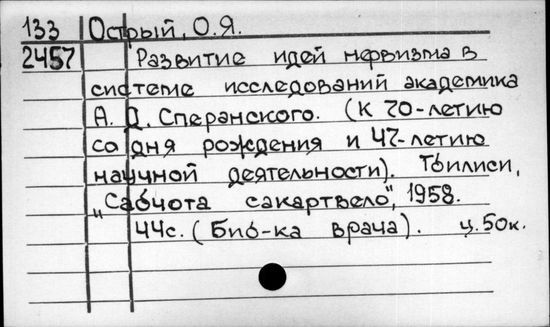 133 Острый, О.Я.
2457 Развитие идей нервизма в
системе исследований академика
А. Д. Сперанского. (К 70-летию
со дня рождения и 47-летию
научной деятельности). Тбилиси,
„Сабчота сакартвело", 1958.
44с. (Биб-ка врача). ц.50к.